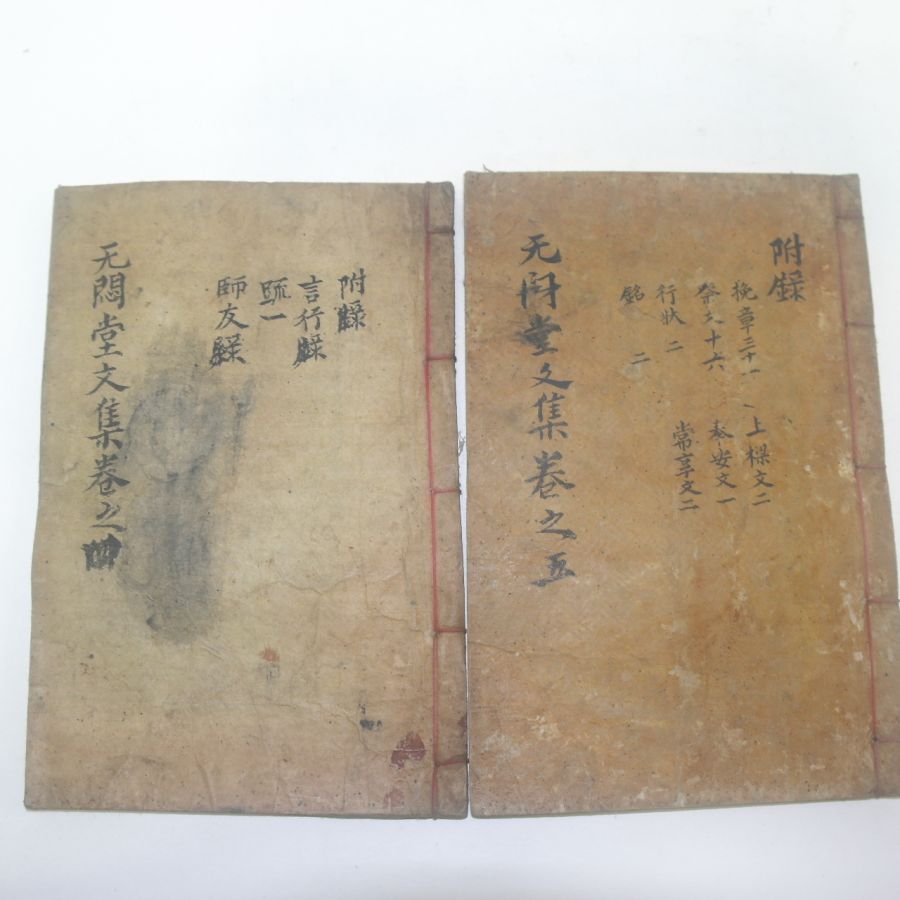 无悶堂文集卷之四
附錄
言行錄
疏一
師友錄
无悶堂文集卷之五
附錄
挽章三十一
祭文十六
行狀 二
銘 二
上樑文二
奉安文一
常享文二